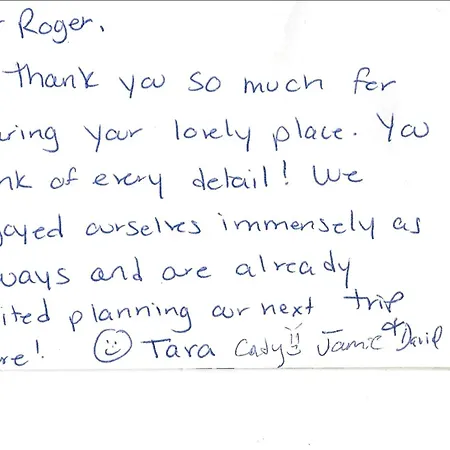 Roger.
thank you so much for
ring your lovely place. You
nk of every detail! We
oyed ourselves immensely as
ways and are already
ited planning our next trip
re! Tara Cady Jamie & David